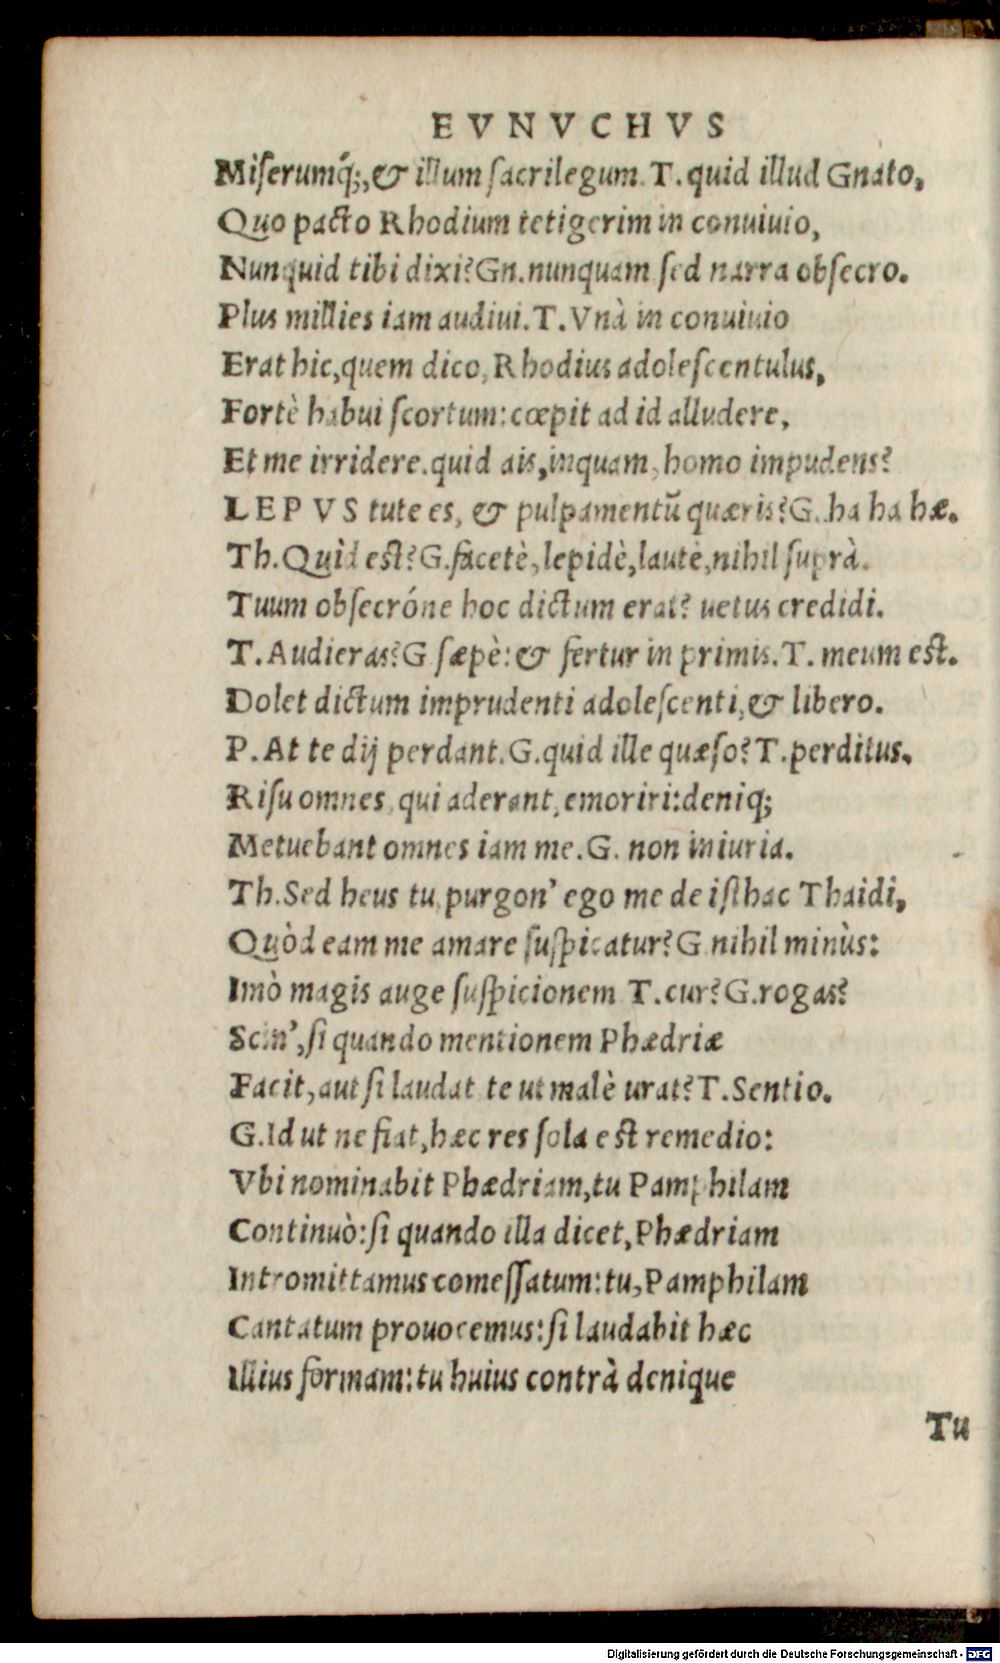 EVNVCHVS
Miſerumq́;,& illum ſacrilegum. T. quid illud Gnato,
Quo pacto Rhodium tetigerim in conuiuio,
Nunquid tibi dixi? Gn. nunquam ſed narra obſecro.
Plus millies iam audiui. T. Vnà in conuiuio
Erat hic, quem dico, Rhodius adoleſcentulus,
Fortè habui ſcortum: cœpit ad id alludere,
Et me irridere. quid ais, inquam, homo impudens?
LEPVS tute es, & pulpamentũ quæris? G. ha ha hæ.
Th. Quid est? G. facetè, lepidè, lautè, nihil ſuprà.
Tuum obſecróne hoc dictum erat? uetus credidi.
T. Audieras? G ſæpè: & fertur in primis. T. meum est.
Dolet dictum imprudenti adoleſcenti, & libero.
P. At te dij perdant. G. quid ille quæſo? T. perditus.
Riſu omnes, qui aderant, emoriri: deniq;
Metuebant omnes iam me. G. non iniuria.
Th. Sed heus tu, purgon' ego me de iſthac Thaidi,
Quòd eam me amare ſuſpicatur? G nihil minùs:
Imò magis auge ſuſpicionem T. cur? G. rogas?
Scin', ſi quando mentionem Phædriæ
Facit, aut ſi laudat te ut malè urat? T. Sentio.
G. Id ut ne fiat, hæc res ſola est remedio:
Vbi nominabit Phædriam, tu Pamphilam
Continuò: ſi quando illa dicet, Phædriam
Intromittamus comeſſatum: tu, Pamphilam
Cantatum prouocemus: ſi laudabit hæc
Illius formam: tu huius contrà denique
Tu
Digitalisierung gefördert durch die Deutsche Forschungsgemeinschaft - DFG